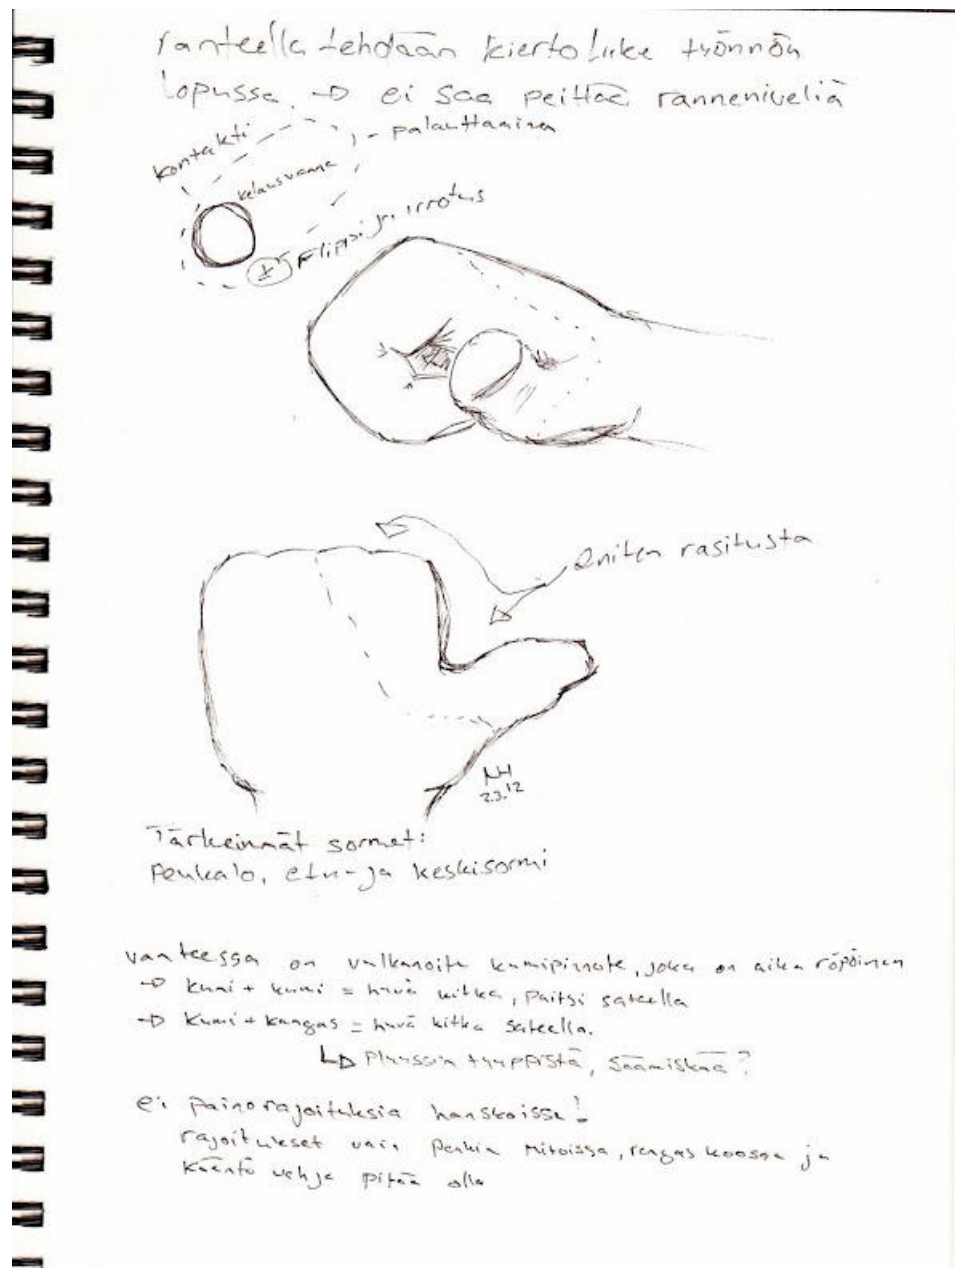 ranteella tehdään kiertoliike työnnön
lopussa. → ei saa peittää ranneniveliä
kontakti
palauttaminen
kelausvanne
Flipsi ja irrotus
Eniten rasitusta
NH
2.3.12
Tärkeimmät sormet:
Peukalo, etu- ja keskisormi
vanteessa on vulkanoitu kumipinnote, joka on aika röpöinen
→ kumi + kumi = hyvä kitka, Paitsi sateella
→ Kumi + kangas = hyvä kitka sateella.
↳ Plyyssin tyyppistä, säämiskää?
ei painorajoituksia hanskoissa!
rajoitukset vain Penkin mitoissa, rengas koossa ja
kääntö vehje pitää olla